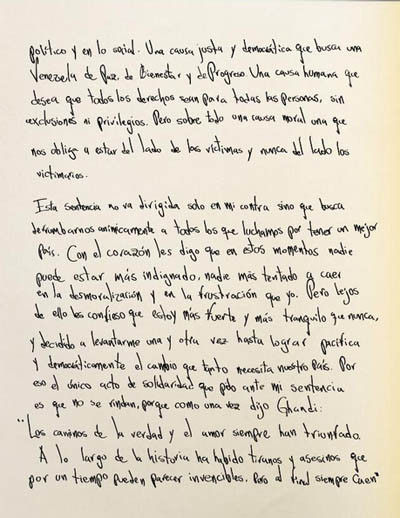 político y en lo social. Una causa justa y democrática que busca una
Venezuela de Paz, de Bienestar y de Progreso. Una causa humana que
desea que todos los derechos sean para todas las personas, sin
exclusiones ni privilegios. Pero sobre todo una causa moral una que
nos obliga a estar del lado de las víctimas y nunca del lado los
victimarios.
Esta sentencia no va dirigida solo en mi contra sino que busca
derrumbarnos anímicamente a todos los que luchamos por tener un mejor
país. Con el corazón les digo que en estos momentos nadie
puede estar más indignado, nadie más tentado a caer
en la desmoralización y en la frustración que yo. Pero lejos
de ello les confieso que estoy más fuerte y más tranquilo que nunca,
y decidido a levantarme una y otra vez hasta lograr pacífica
y democráticamente el cambio que tanto necesita nuestro País. Por
eso el único acto de solidaridad que pido ante mi sentencia
es que no se rindan, porque como una vez dijo Ghandi:
"Los caminos de la verdad y el amor siempre han triunfado.
A lo largo de la historia ha habido tiranos y asesinos que
por un tiempo pueden parecer invencibles. Pero al final siempre caen"